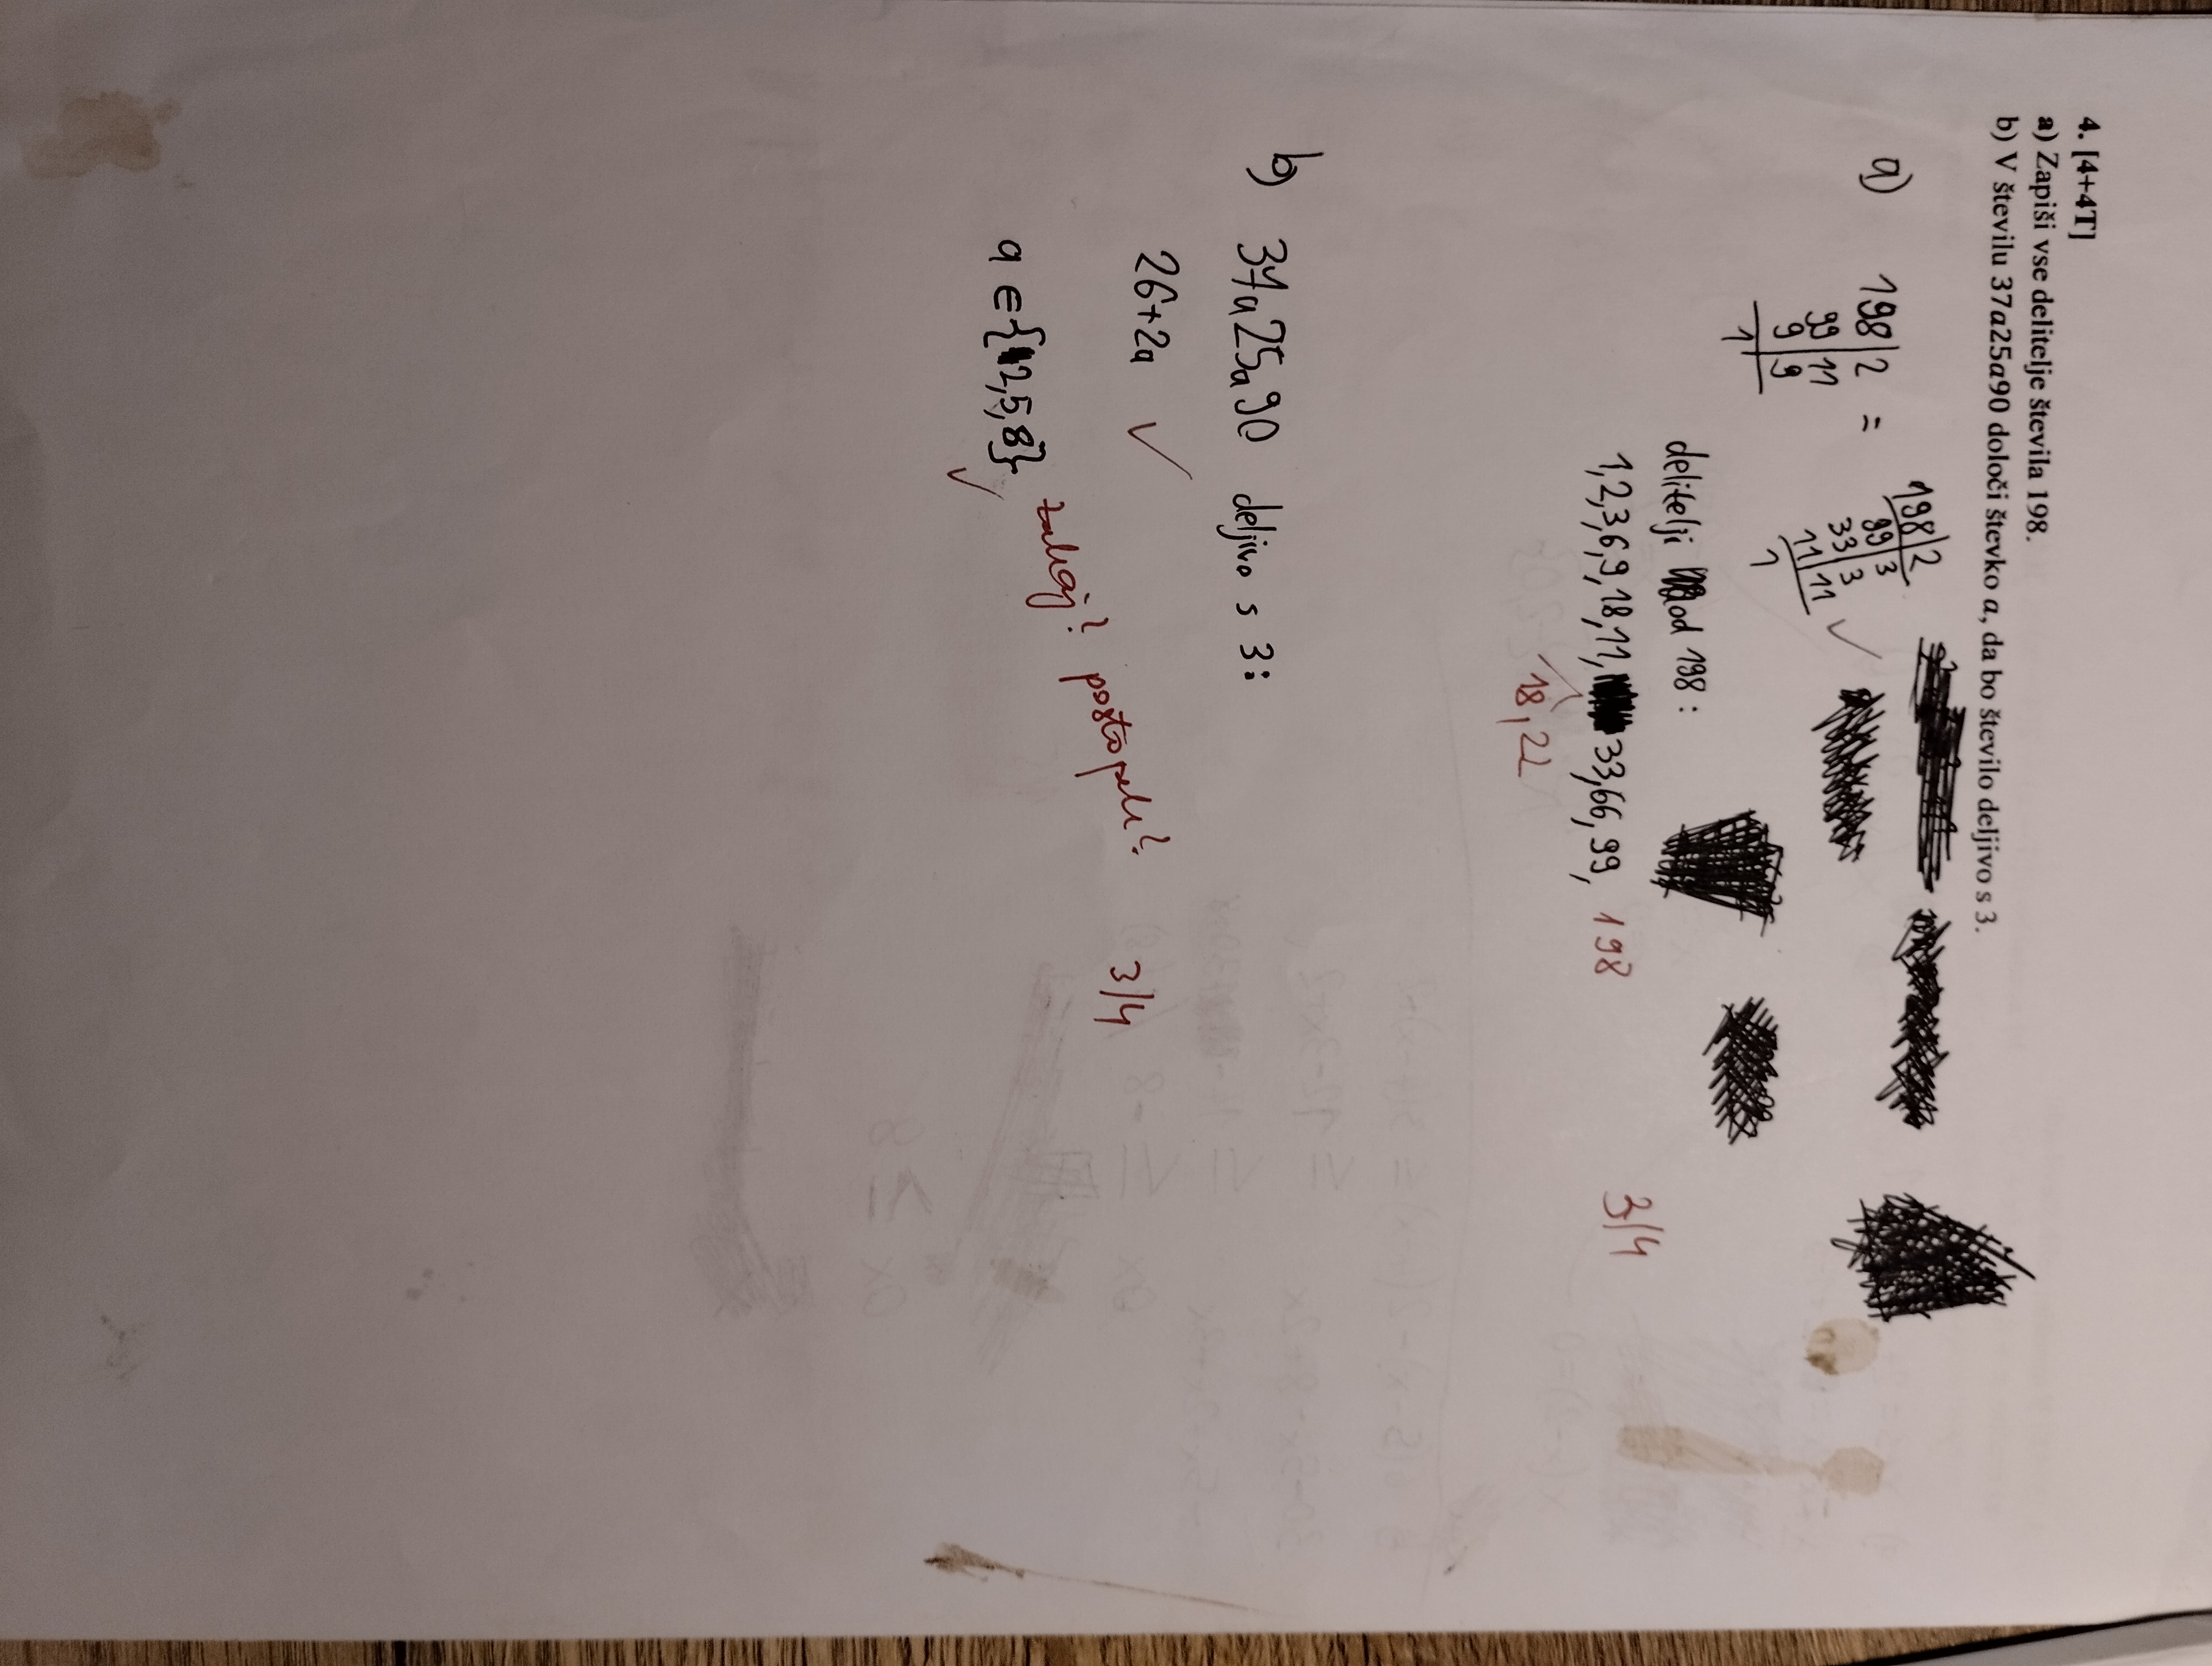 4. [4+4T]
a) Zapiši vse delitelje števila 198.
b) V številu 37a25a90 določi števko a, da bo število deljivo s 3.
a)
198|2 =
99|11
9|9
1
198|2
99|3
33|3
11|11
1
delitelji od 198:
1,2,3,6,9,18,11, 33,66,99, 198
18,22
3/4
b) 37a25a90 deljivo s 3:
26+2a
zakaj? postopek?
3/4
a ∈ {2,5,8}